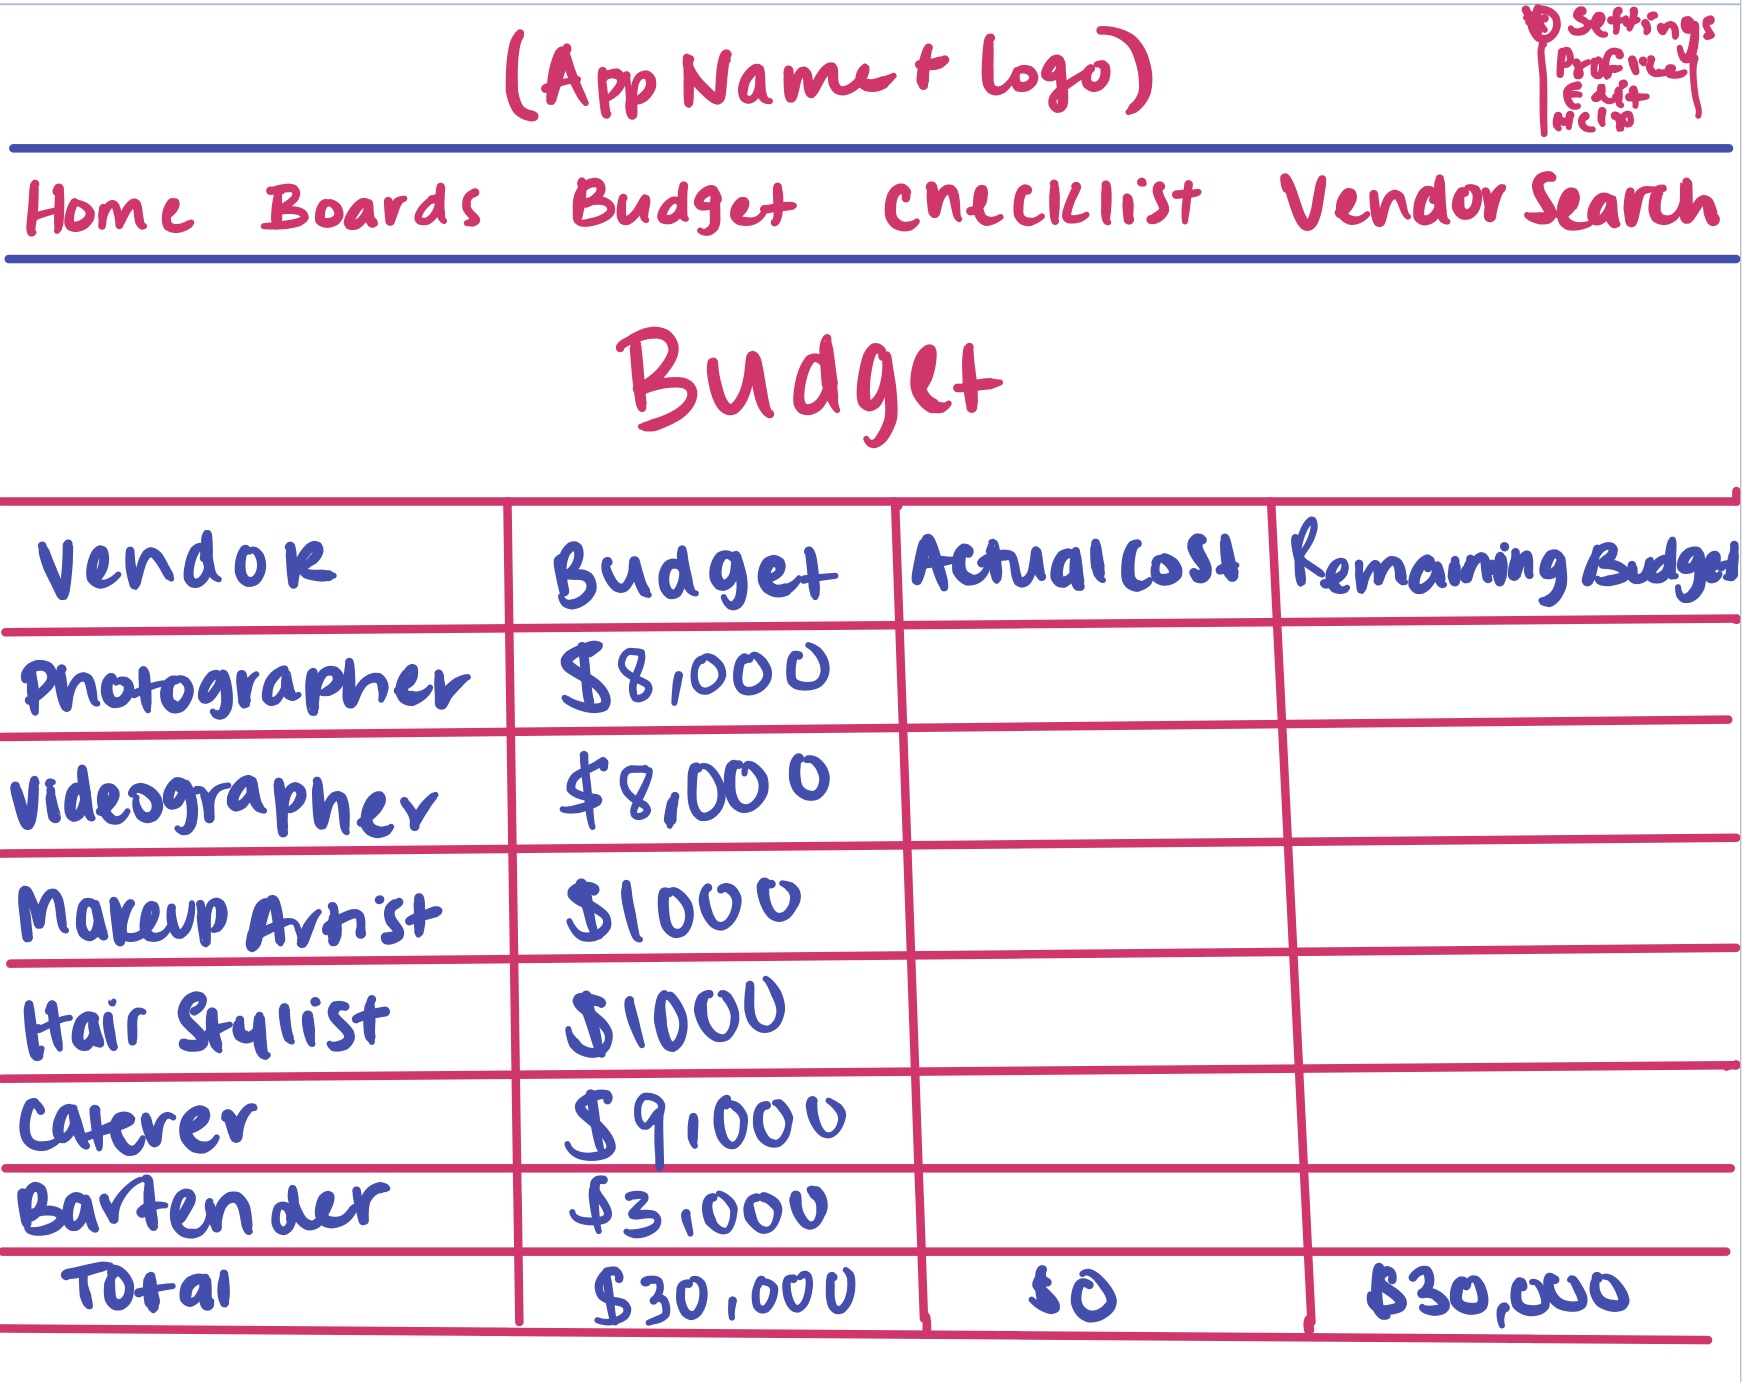 (App Name + Logo)
Settings
Profile
Edit
Help
Home Boards Budget Checklist Vendor Search
Budget
Vendor Budget Actual Cost Remaining Budget
Photographer $8,000
Videographer $8,000
Makeup Artist $1000
Hair Stylist $1000
Caterer $9,000
Bartender $3,000
Total $30,000 $0 $30,000